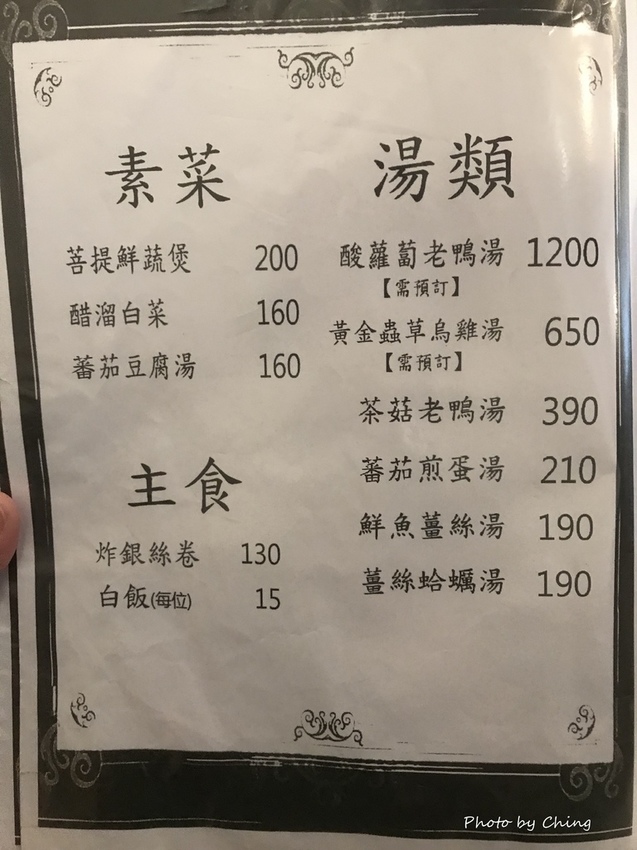 素菜
菩提鮮蔬煲 200
醋溜白菜 160
蕃茄豆腐湯 160
主食
炸銀絲卷 130
白飯(每位) 15
湯類
酸蘿蔔老鴨湯 1200
【需預訂】
黃金蟲草烏雞湯 650
【需預訂】
茶菇老鴨湯 390
蕃茄煎蛋湯 210
鮮魚薑絲湯 190
薑絲蛤蠣湯 190
Photo by Ching